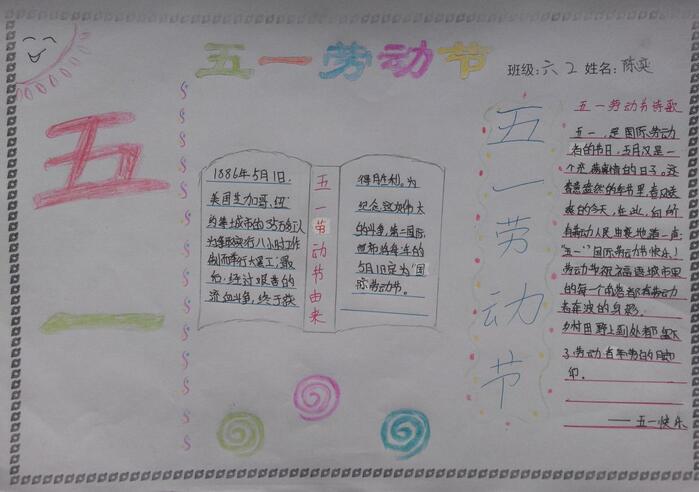 五一劳动节
班级:六 2 姓名:陈奕
五
一
1886年5月1日.
美国芝加哥、纽
约等大城市的35万名工人
为争取实行八小时工作
制而举行大罢工;最
后,经过艰苦的
流血斗争,终于获
五一劳动节由来
得胜利。为
纪念这次伟大
的斗争,第二国际
宣布将每年的
5月1日定为“国
际劳动节。
五一劳动节
五一劳动节诗歌
五一,是国际劳动
者的节日,五月又是一
个充满激情的日子。这
春意盎然的季节里,春风送
爽的今天,在此,向所
有劳动人民由衷地道一声:
“五一”国际劳动节快乐!
劳动节祝福遍城市里
的每一个角落都有劳动
者奔波的身影.
乡村田野上到处都留下
了劳动者辛劳的脚
印。
——五一快乐